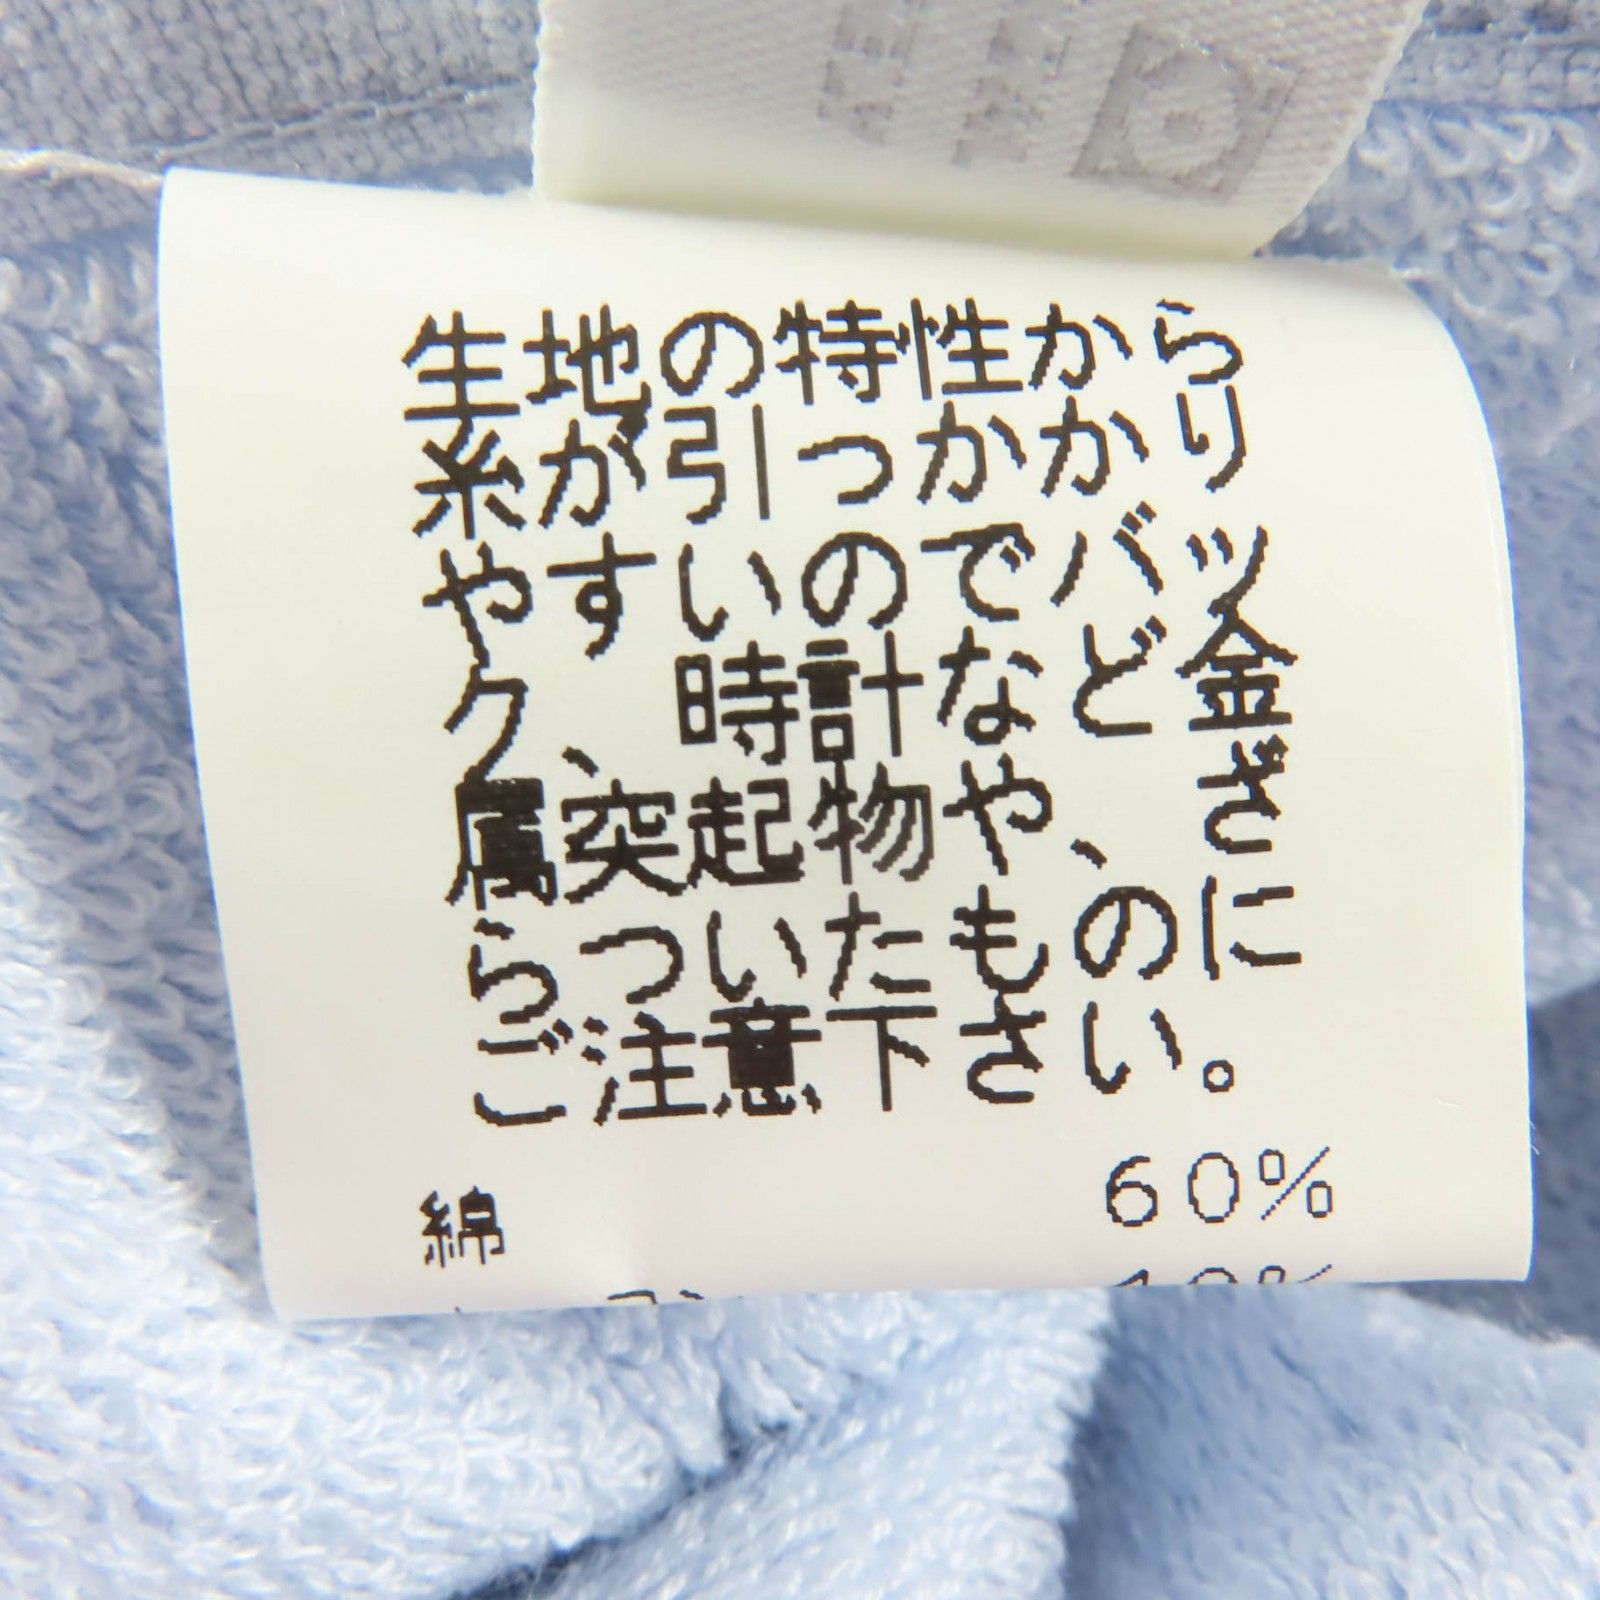 生地の特性から
糸が引っかかり
やすいのでバッ
ク、時計など金
属突起物や、ざ
らついたものに
ご注意下さい。
綿 60%